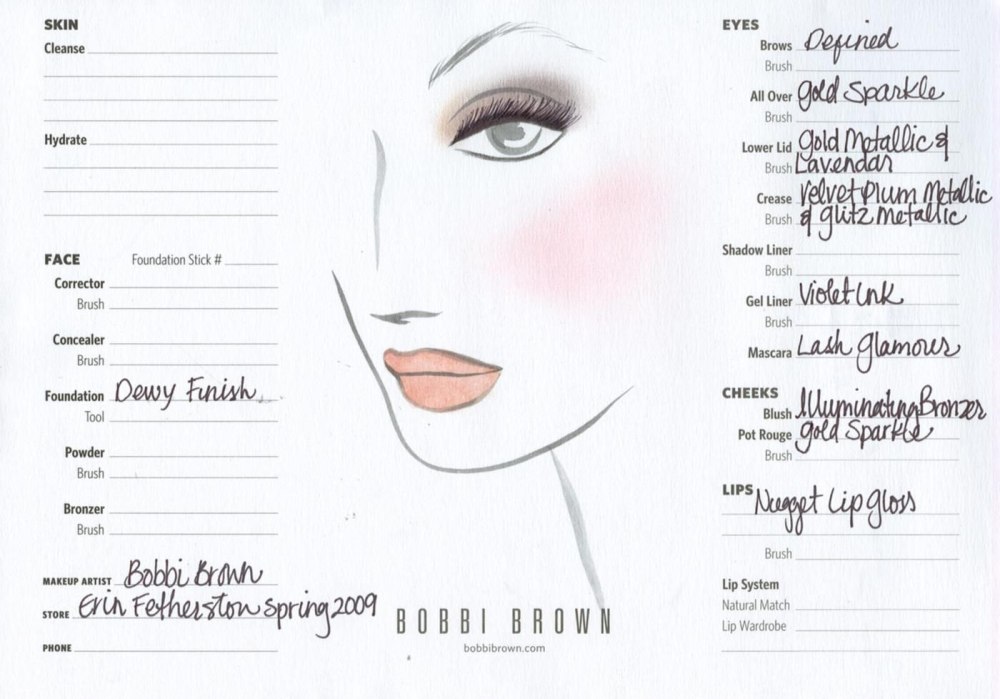 SKIN
Cleanse
Hydrate
FACE Foundation Stick #
Corrector
Brush
Concealer
Brush
Foundation Dewy Finish
Tool
Powder
Brush
Bronzer
Brush
MAKEUP ARTIST Bobbi Brown
STORE Erin Fetherston Spring 2009
PHONE
BOBBI BROWN
bobbibrown.com
EYES
Brows Defined
Brush
All Over Gold Sparkle
Brush
Lower Lid Gold Metallic &
Brush Lavendar
Crease Velvet Plum Metallic
Brush & Glitz Metallic
Shadow Liner
Brush
Gel Liner Violet Ink
Brush
Mascara Lash Glamour
CHEEKS
Blush Illuminating Bronzer
Pot Rouge Gold Sparkle
Brush
LIPS Nugget Lip Gloss
Brush
Lip System
Natural Match
Lip Wardrobe